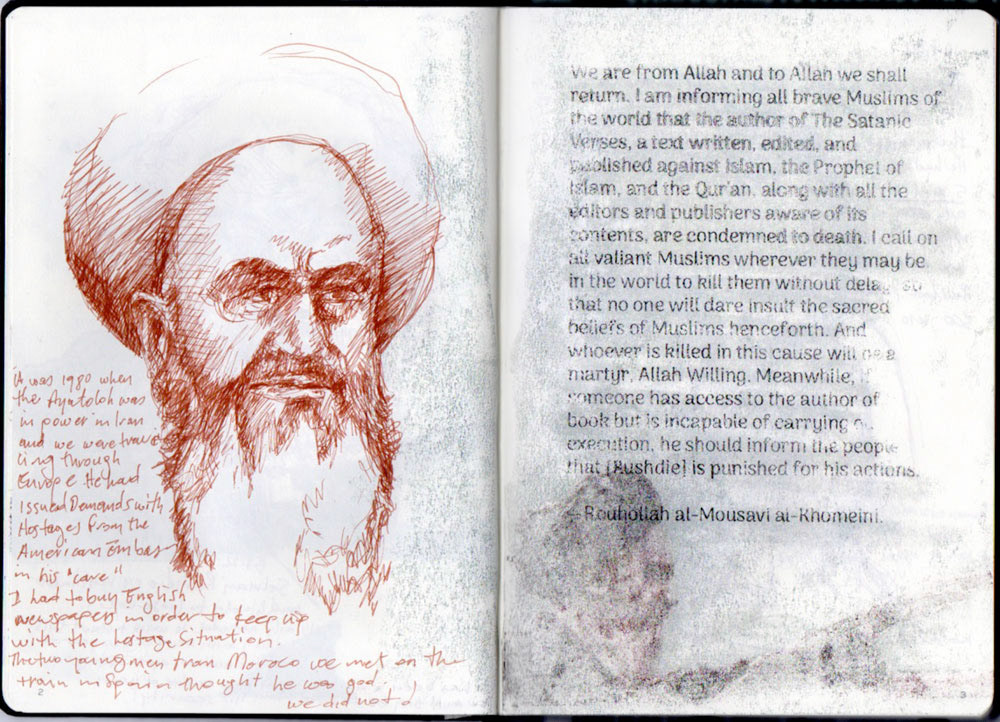 it was 1980 when
the Ayatolah was
in power in Iran
and we were trave
ling through
Europe. He had
issued Demands with
Hostages from the
American Embas
in his "care"
I had to buy English
newspapers in order to keep up
with the hostage situation.
The two young men from Moroco we met on the
train in Spain thought he was god.
we did not!
2
We are from Allah and to Allah we shall
return. I am informing all brave Muslims of
the world that the author of The Satanic
Verses, a text written, edited, and
published against Islam, the Prophet of
Islam, and the Qur'an, along with all the
editors and publishers aware of its
contents, are condemned to death. I call on
all valiant Muslims wherever they may be
in the world to kill them without delay, so
that no one will dare insult the sacred
beliefs of Muslims henceforth. And
whoever is killed in this cause will be a
martyr, Allah Willing. Meanwhile, if
someone has access to the author of
book but is incapable of carrying
execution, he should inform the people
that [Rushdie] is punished for his actions.
—Rouhollah al-Mousavi al-Khomeini.
3